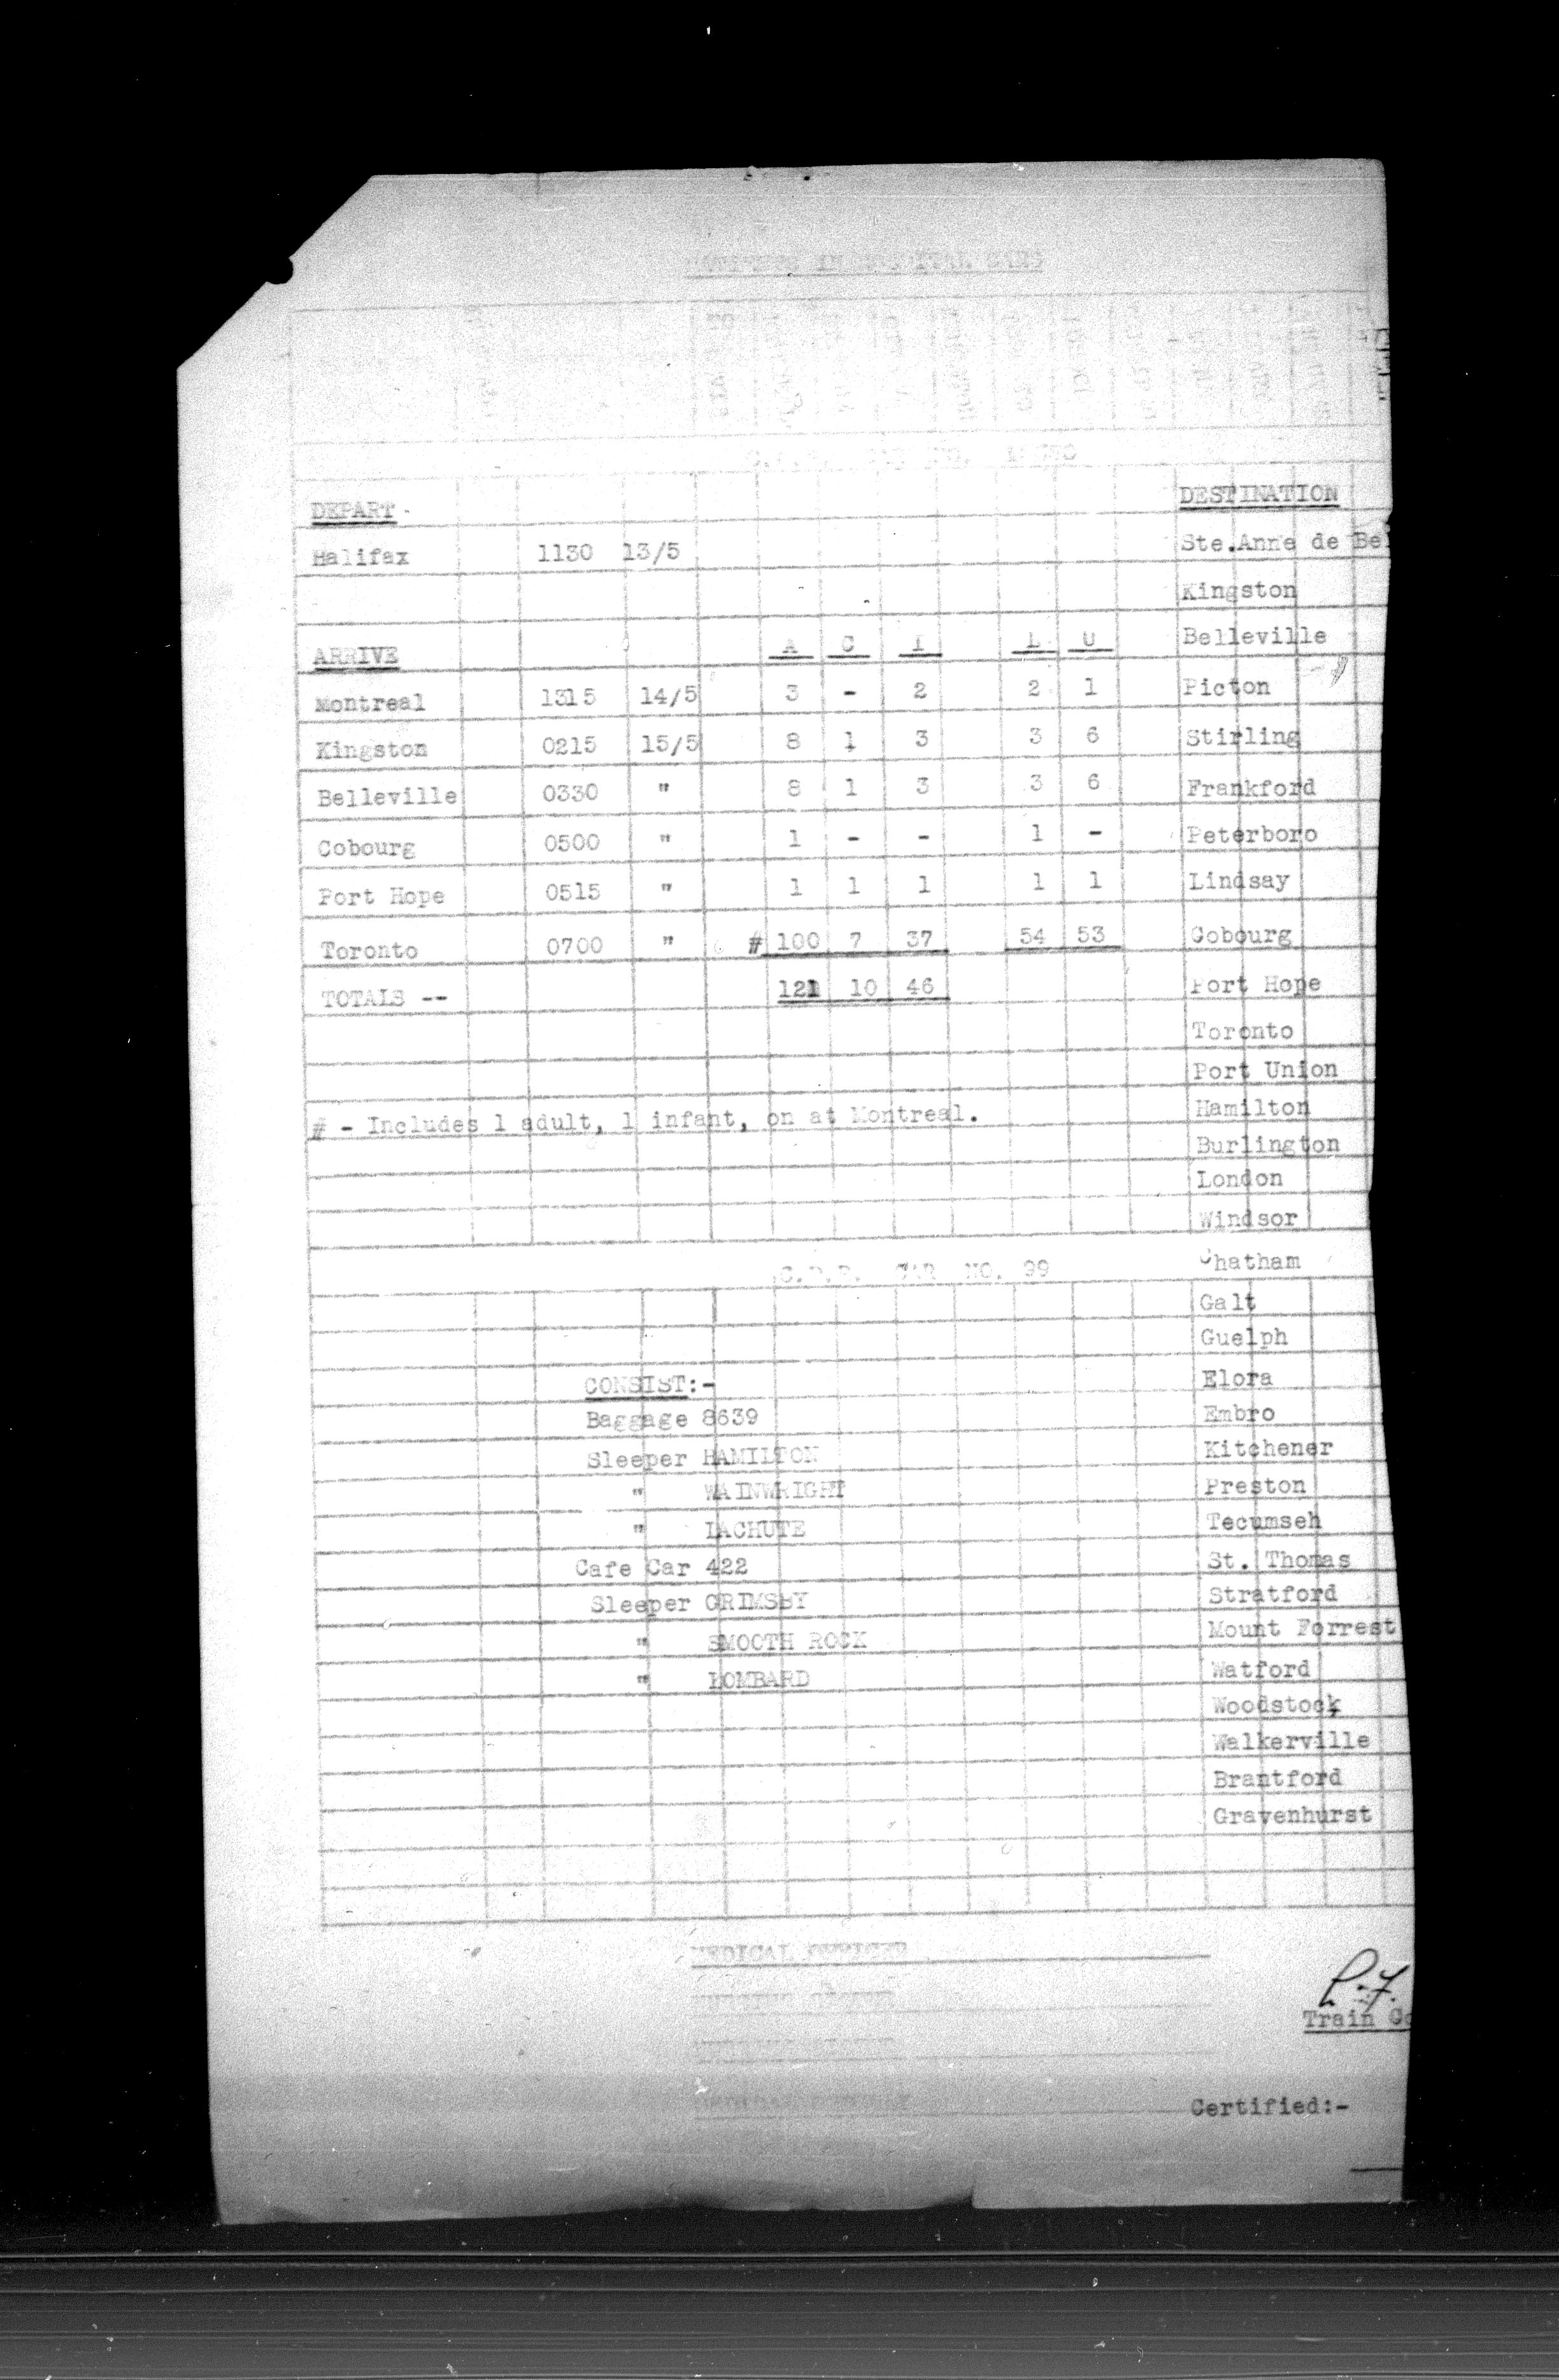 DEPART
Halifax 1130 13/5
ARRIVE A C I L U
Montreal 1315 14/5 3 - 2 2 1
Kingston 0215 15/5 8 1 3 3 6
Belleville 0330 " 8 1 3 3 6
Cobourg 0500 " 1 - - 1 -
Port Hope 0515 " 1 1 1 1 1
Toronto 0700 " # 100 7 37 54 53
TOTALS -- 121 10 46
# - Includes 1 adult, 1 infant, on at Montreal.
C.P.R. CAR NO. 99
CONSIST:-
Baggage 8639
Sleeper HAMILTON
" WAINWRIGHT
" LACHUTE
Cafe Car 422
Sleeper GRIMSBY
" SMOOTH ROCK
" LOMBARD
DESTINATION
Ste.Anne de Bel
Kingston
Belleville
Picton
Stirling
Frankford
Peterboro
Lindsay
Cobourg
Port Hope
Toronto
Port Union
Hamilton
Burlington
London
Windsor
Chatham
Galt
Guelph
Elora
Embro
Kitchener
Preston
Tecumseh
St. Thomas
Stratford
Mount Forrest
Watford
Woodstock
Walkerville
Brantford
Gravenhurst
MEDICAL OFFICER
Train Co
Certified:-